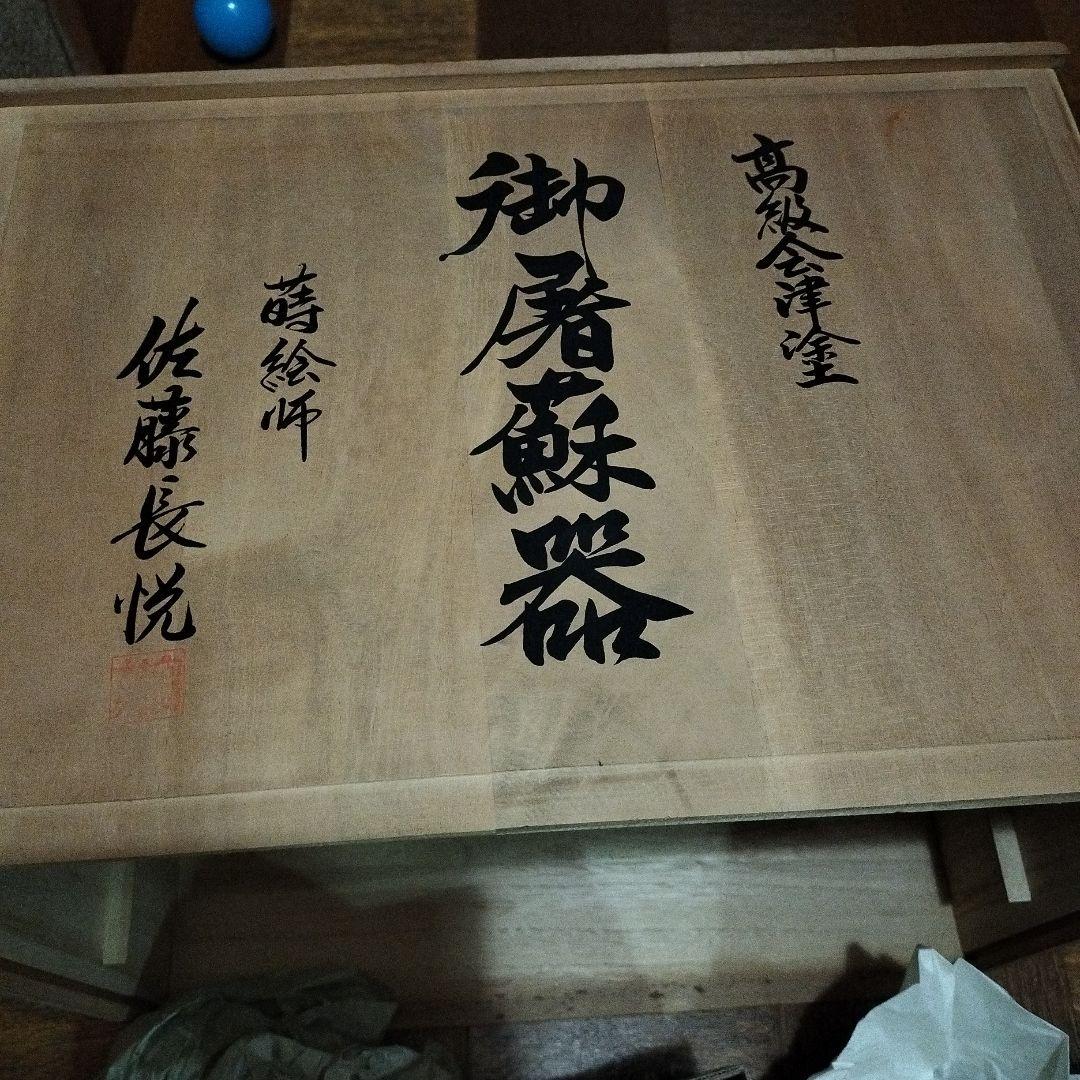 高級会津塗
御屠蘇器
蒔絵師
佐藤長悦